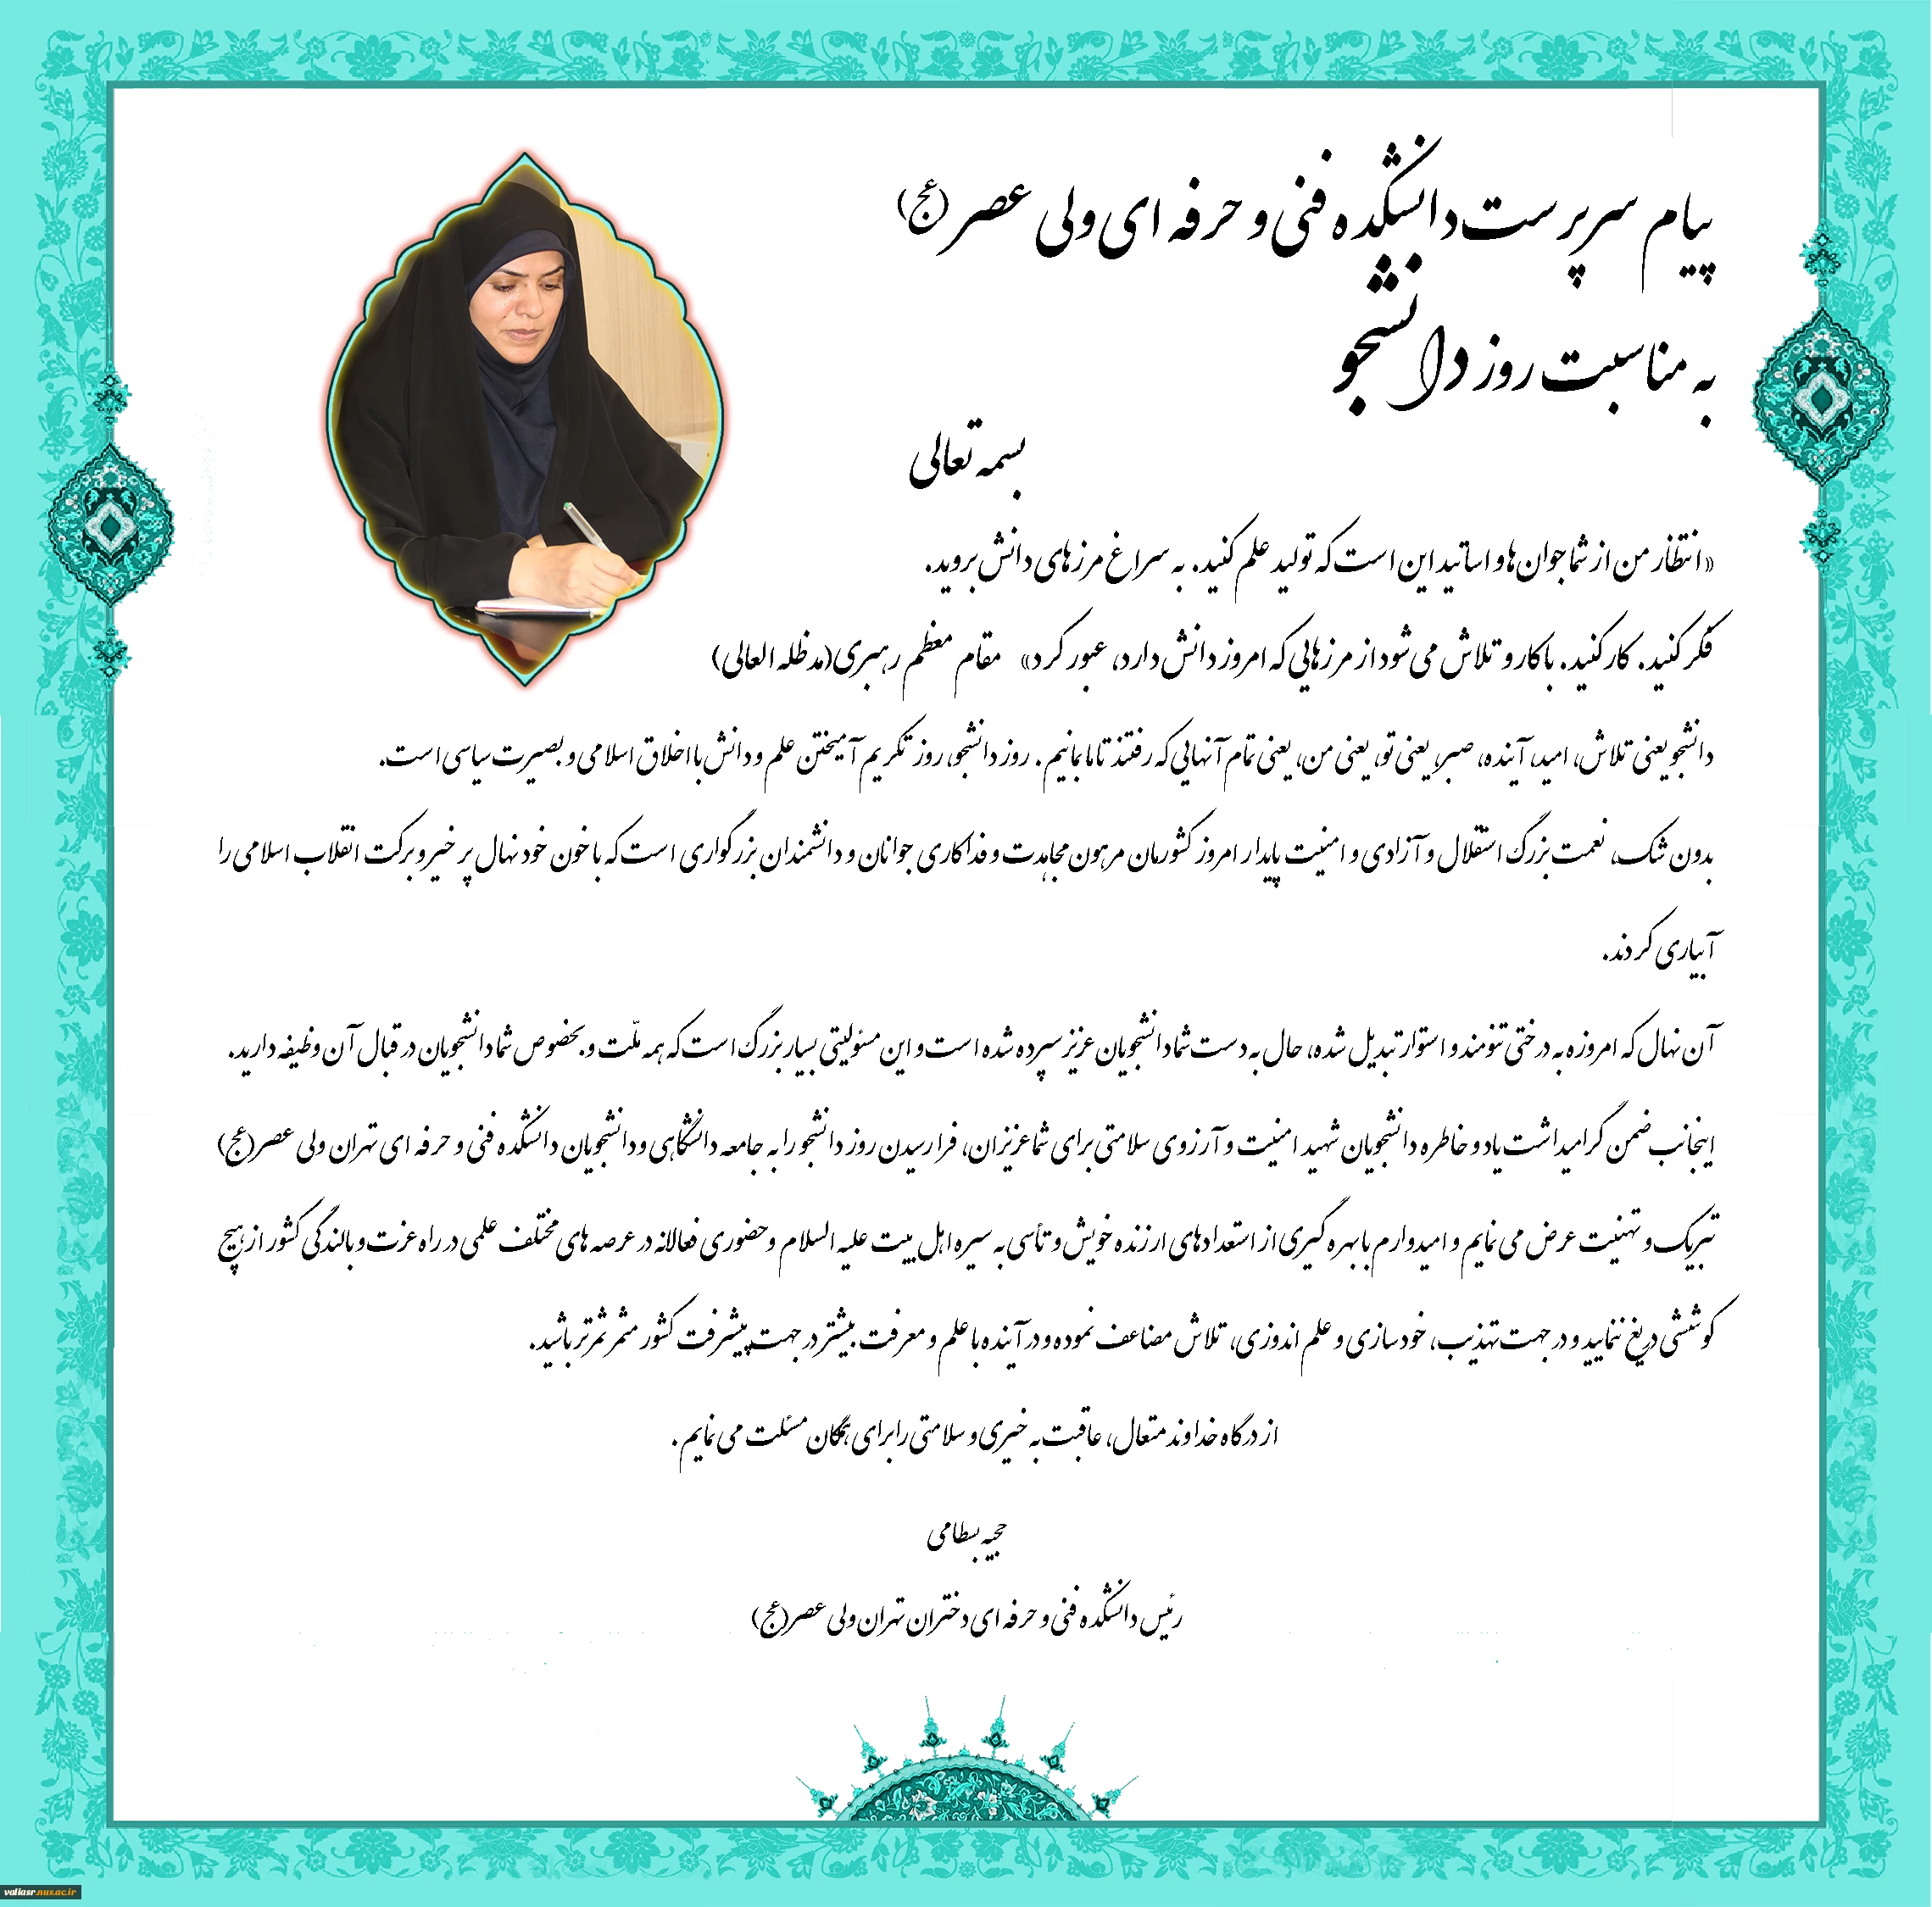 پیام سرپرست دانشکده فنی و حرفه ای ولی عصر (عج)
به مناسبت روز دانشجو
بسمه تعالی
«انتظار من از شما جوان ها و اساتید این است که تولید علم کنید. به سراغ مرزهای دانش بروید.
فکر کنید. کار کنید. با کار و تلاش می شود از مرزهایی که امروز دانش دارد، عبور کرد» مقام معظم رهبری(مدظله العالی)
دانشجو یعنی تلاش، امید، آینده، صبر، یعنی تو، یعنی من، یعنی تمام آنهایی که رفتند تا ما بمانیم. روز دانشجو، روز تکریم آمیختن علم و دانش با اخلاق اسلامی و بصیرت سیاسی است.
بدون شک، نعمت بزرگ استقلال و آزادی و امنیت پایدار امروز کشورمان مرهون مجاهدت و فداکاری جوانان و دانشمندان بزرگواری است که با خون خود نهال پر خیر و برکت انقلاب اسلامی را
آبیاری کردند.
آن نهال که امروزه به درختی تنومند و استوار تبدیل شده، حال به دست شما دانشجویان عزیز سپرده شده است و این مسئولیتی بسیار بزرگ است که همه ملّت و بخصوص شما دانشجویان در قبال آن وظیفه دارید.
اینجانب ضمن گرامیداشت یاد و خاطره دانشجویان شهید امنیت و آرزوی سلامتی برای شما عزیزان، فرا رسیدن روز دانشجو را به جامعه دانشگاهی و دانشجویان دانشکده فنی و حرفه ای تهران ولی عصر(عج)
تبریک و تهنیت عرض می نمایم و امیدوارم با بهره گیری از استعدادهای ارزنده خویش و تأسی به سیره اهل بیت علیه السلام و حضوری فعالانه در عرصه های مختلف علمی در راه عزت و بالندگی کشور از هیچ
کوششی دریغ ننمایید و در جهت تهذیب، خودسازی و علم اندوزی، تلاش مضاعف نموده و در آینده با علم و معرفت بیشتر در جهت پیشرفت کشور مثمر ثمرتر باشید.
از درگاه خداوند متعال، عاقبت به خیری و سلامتی را برای همگان مسئلت می نمایم.
بسطامی
رئیس دانشکده فنی و حرفه ای دختران تهران ولی عصر(عج)
valiasr.nus.ac.ir